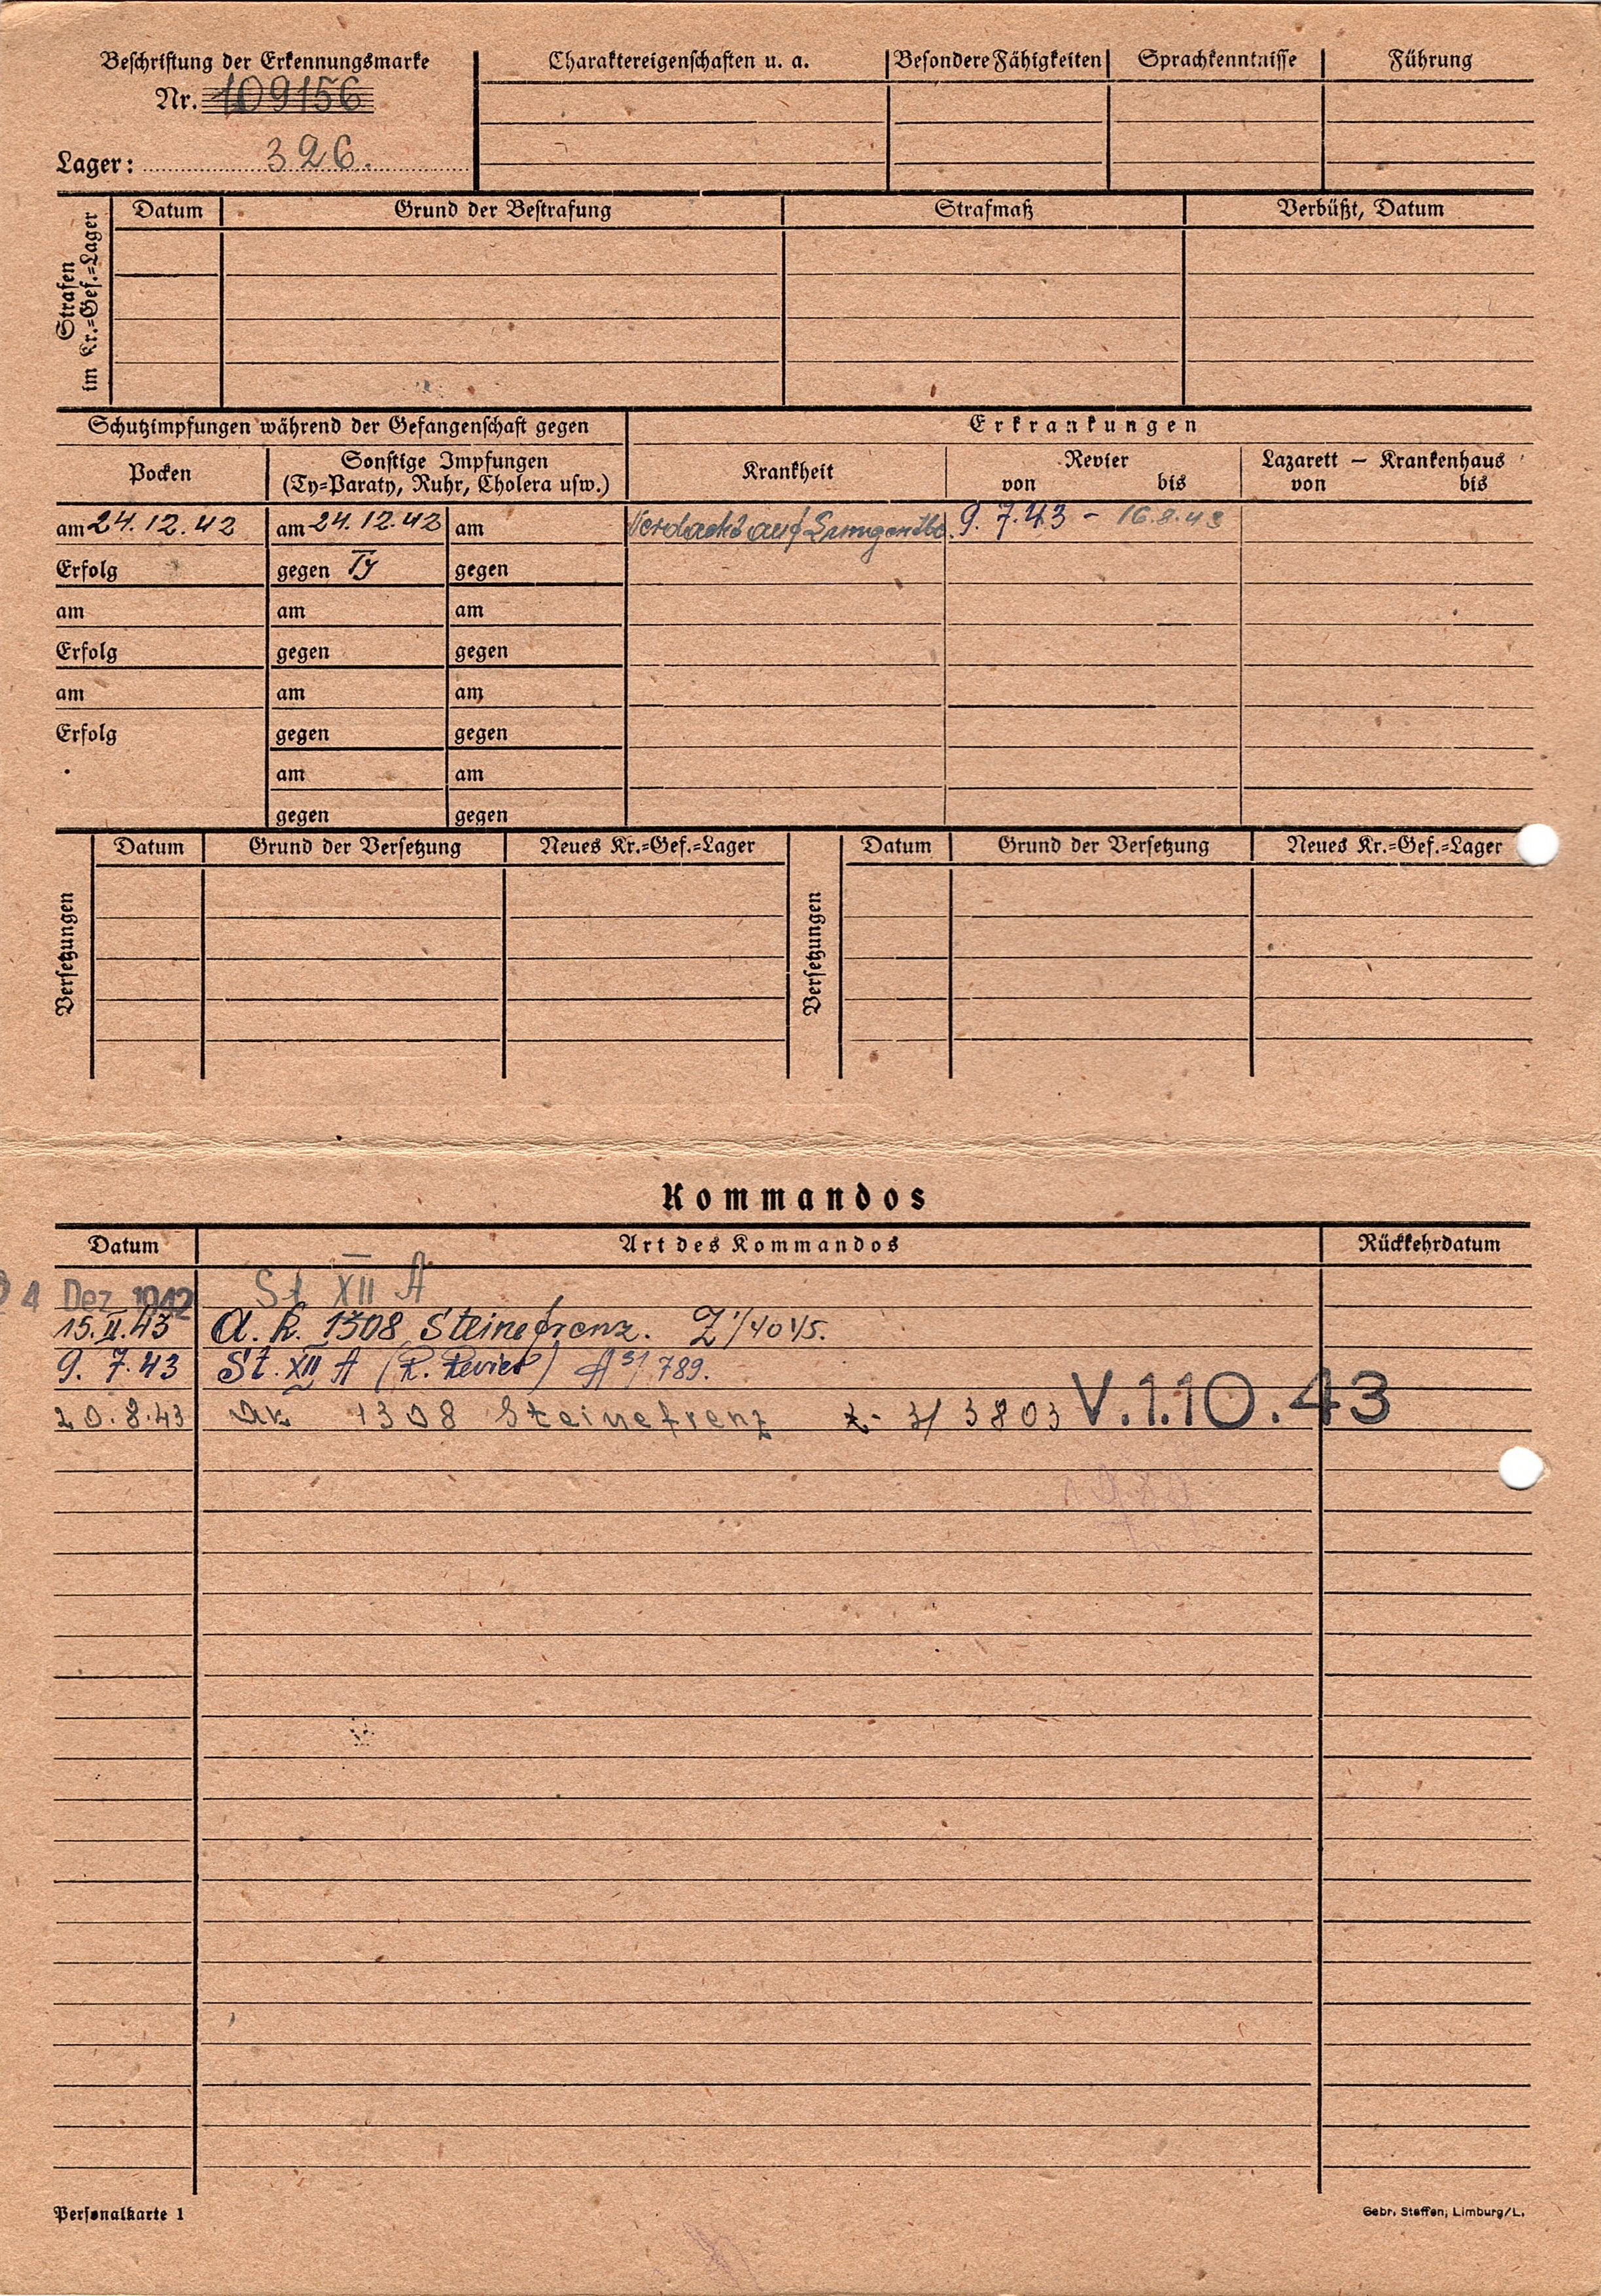 Beschriftung der Erkennungsmarke
Nr. 109156
Lager: 326.
Charaktereigenschaften u. a.
Besondere Fähigkeiten
Sprachkenntnisse
Führung
Strafen
im Kr.=Gef.=Lager
Datum
Grund der Bestrafung
Strafmaß
Verbüßt, Datum
Schutzimpfungen während der Gefangenschaft gegen
Erkrankungen
Pocken
Sonstige Impfungen
(Ty=Paraty, Ruhr, Cholera usw.)
Krankheit
Revier
von bis
Lazarett – Krankenhaus
von bis
am 24.12.42 am 24.12.42 am
Verdacht auf 9. 7.43 - 16.8.43
Erfolg gegen Ty gegen
am am am
Erfolg gegen gegen
am am am
Erfolg gegen gegen
am am
gegen gegen
Versetzungen
Datum Grund der Versetzung Neues Kr.=Gef.=Lager
Versetzungen
Datum Grund der Versetzung Neues Kr.=Gef.=Lager
Kommandos
Datum Art des Kommandos Rückkehrdatum
24 Dez 1942 St XII A
15.II.43 A. K. 1308 Steinefrenz. Z 1/4045.
9. 7.43 St. XII A (K. Revier) A 31 789.
20.8.43 AK 1308 Steinefrenz Z. 3/ 3803 V.1.10.43
Personalkarte 1
Gebr. Steffen, Limburg/L.